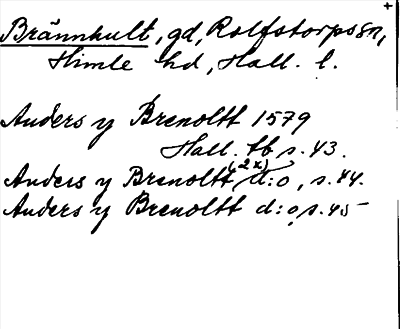 +
Brännhult, gd, Rolfstorps sn,
Himle hd, Hall. l.
Anders y Brenoltt 1579
Hall. tb s. 43.
(2x)
Anders y Brenoltt, d:o, s. 44.
Anders y Brenoltt d:o, s. 45